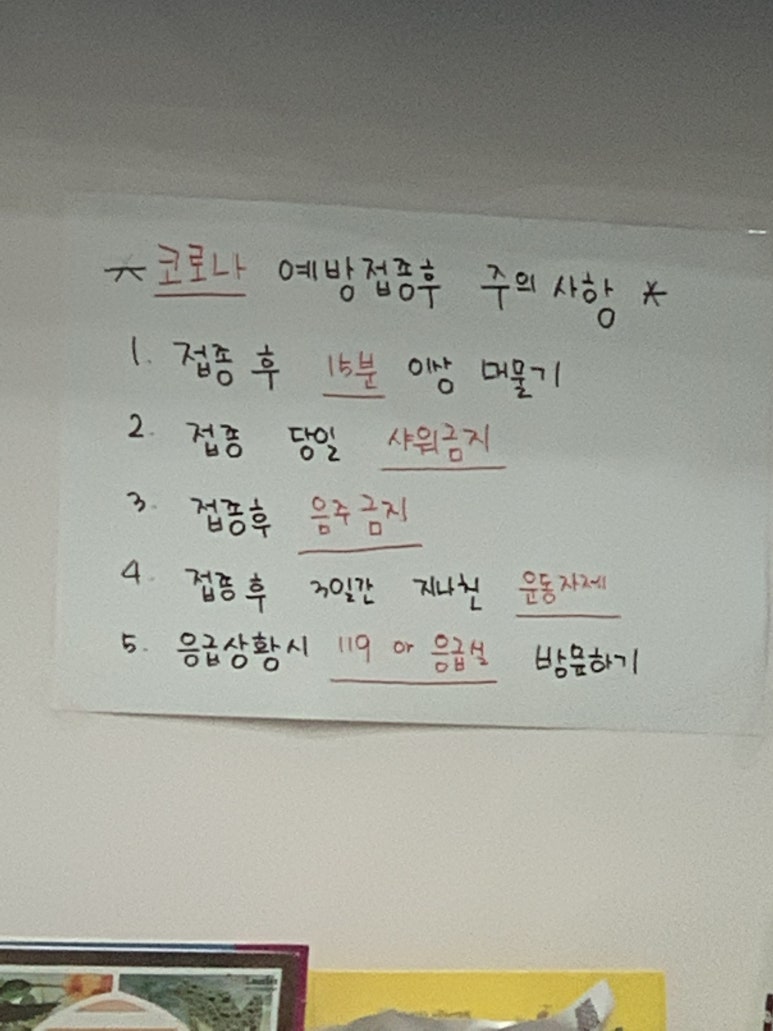 * 코로나 예방접종후 주의 사항 *
1. 접종 후 15분 이상 머물기
2. 접종 당일 샤워금지
3. 접종후 음주금지
4. 접종 후 3일간 지나친 운동자제
5. 응급상황시 119 or 응급실 방문하기